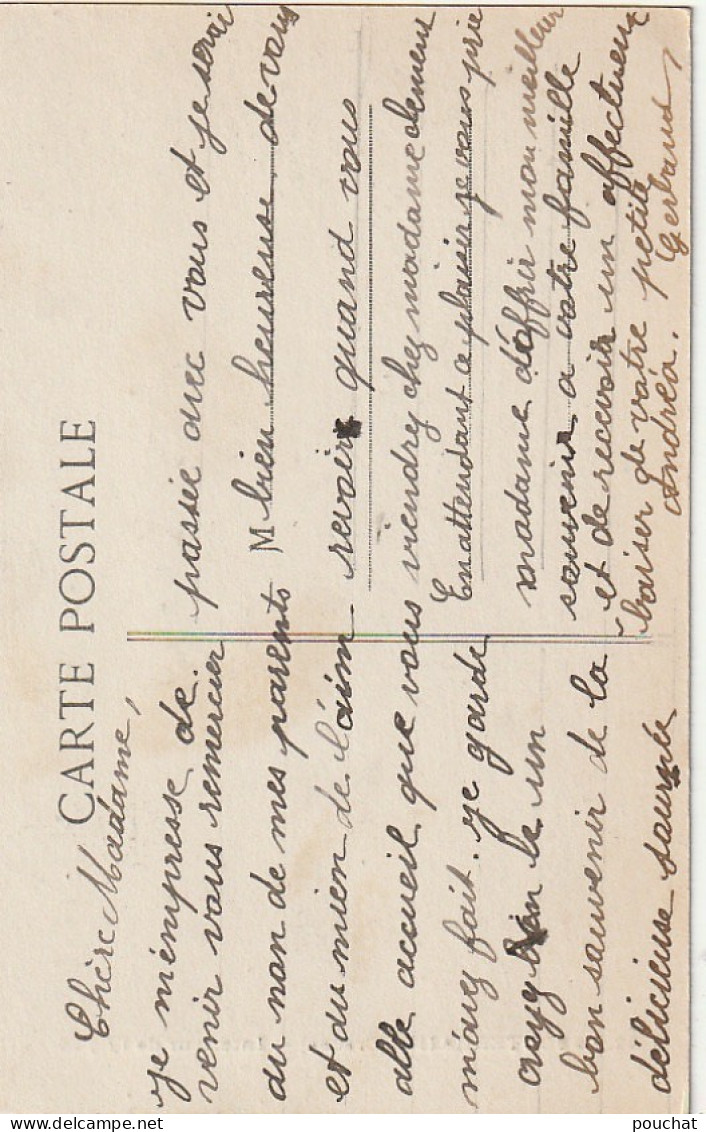 CARTE POSTALE
Chère Madame,
je m'empresse de
venir vous remercier
du non de mes parents
et du mien de l'aim
able accueil que vous
m'avez fait. je garde
croyez bien le un
bon souvenir de la
délicieuse
passée avec vous et je serai
M bien heureuse de vous
revoir quand vous
viendrez chez madame
En attendant ce plaisir je vous prie
madame d'offrir mon meilleur
souvenir a votre famille
et de recevoir un affectueux
baiser de votre petite
Andréa. Gerbaud,
pouchat